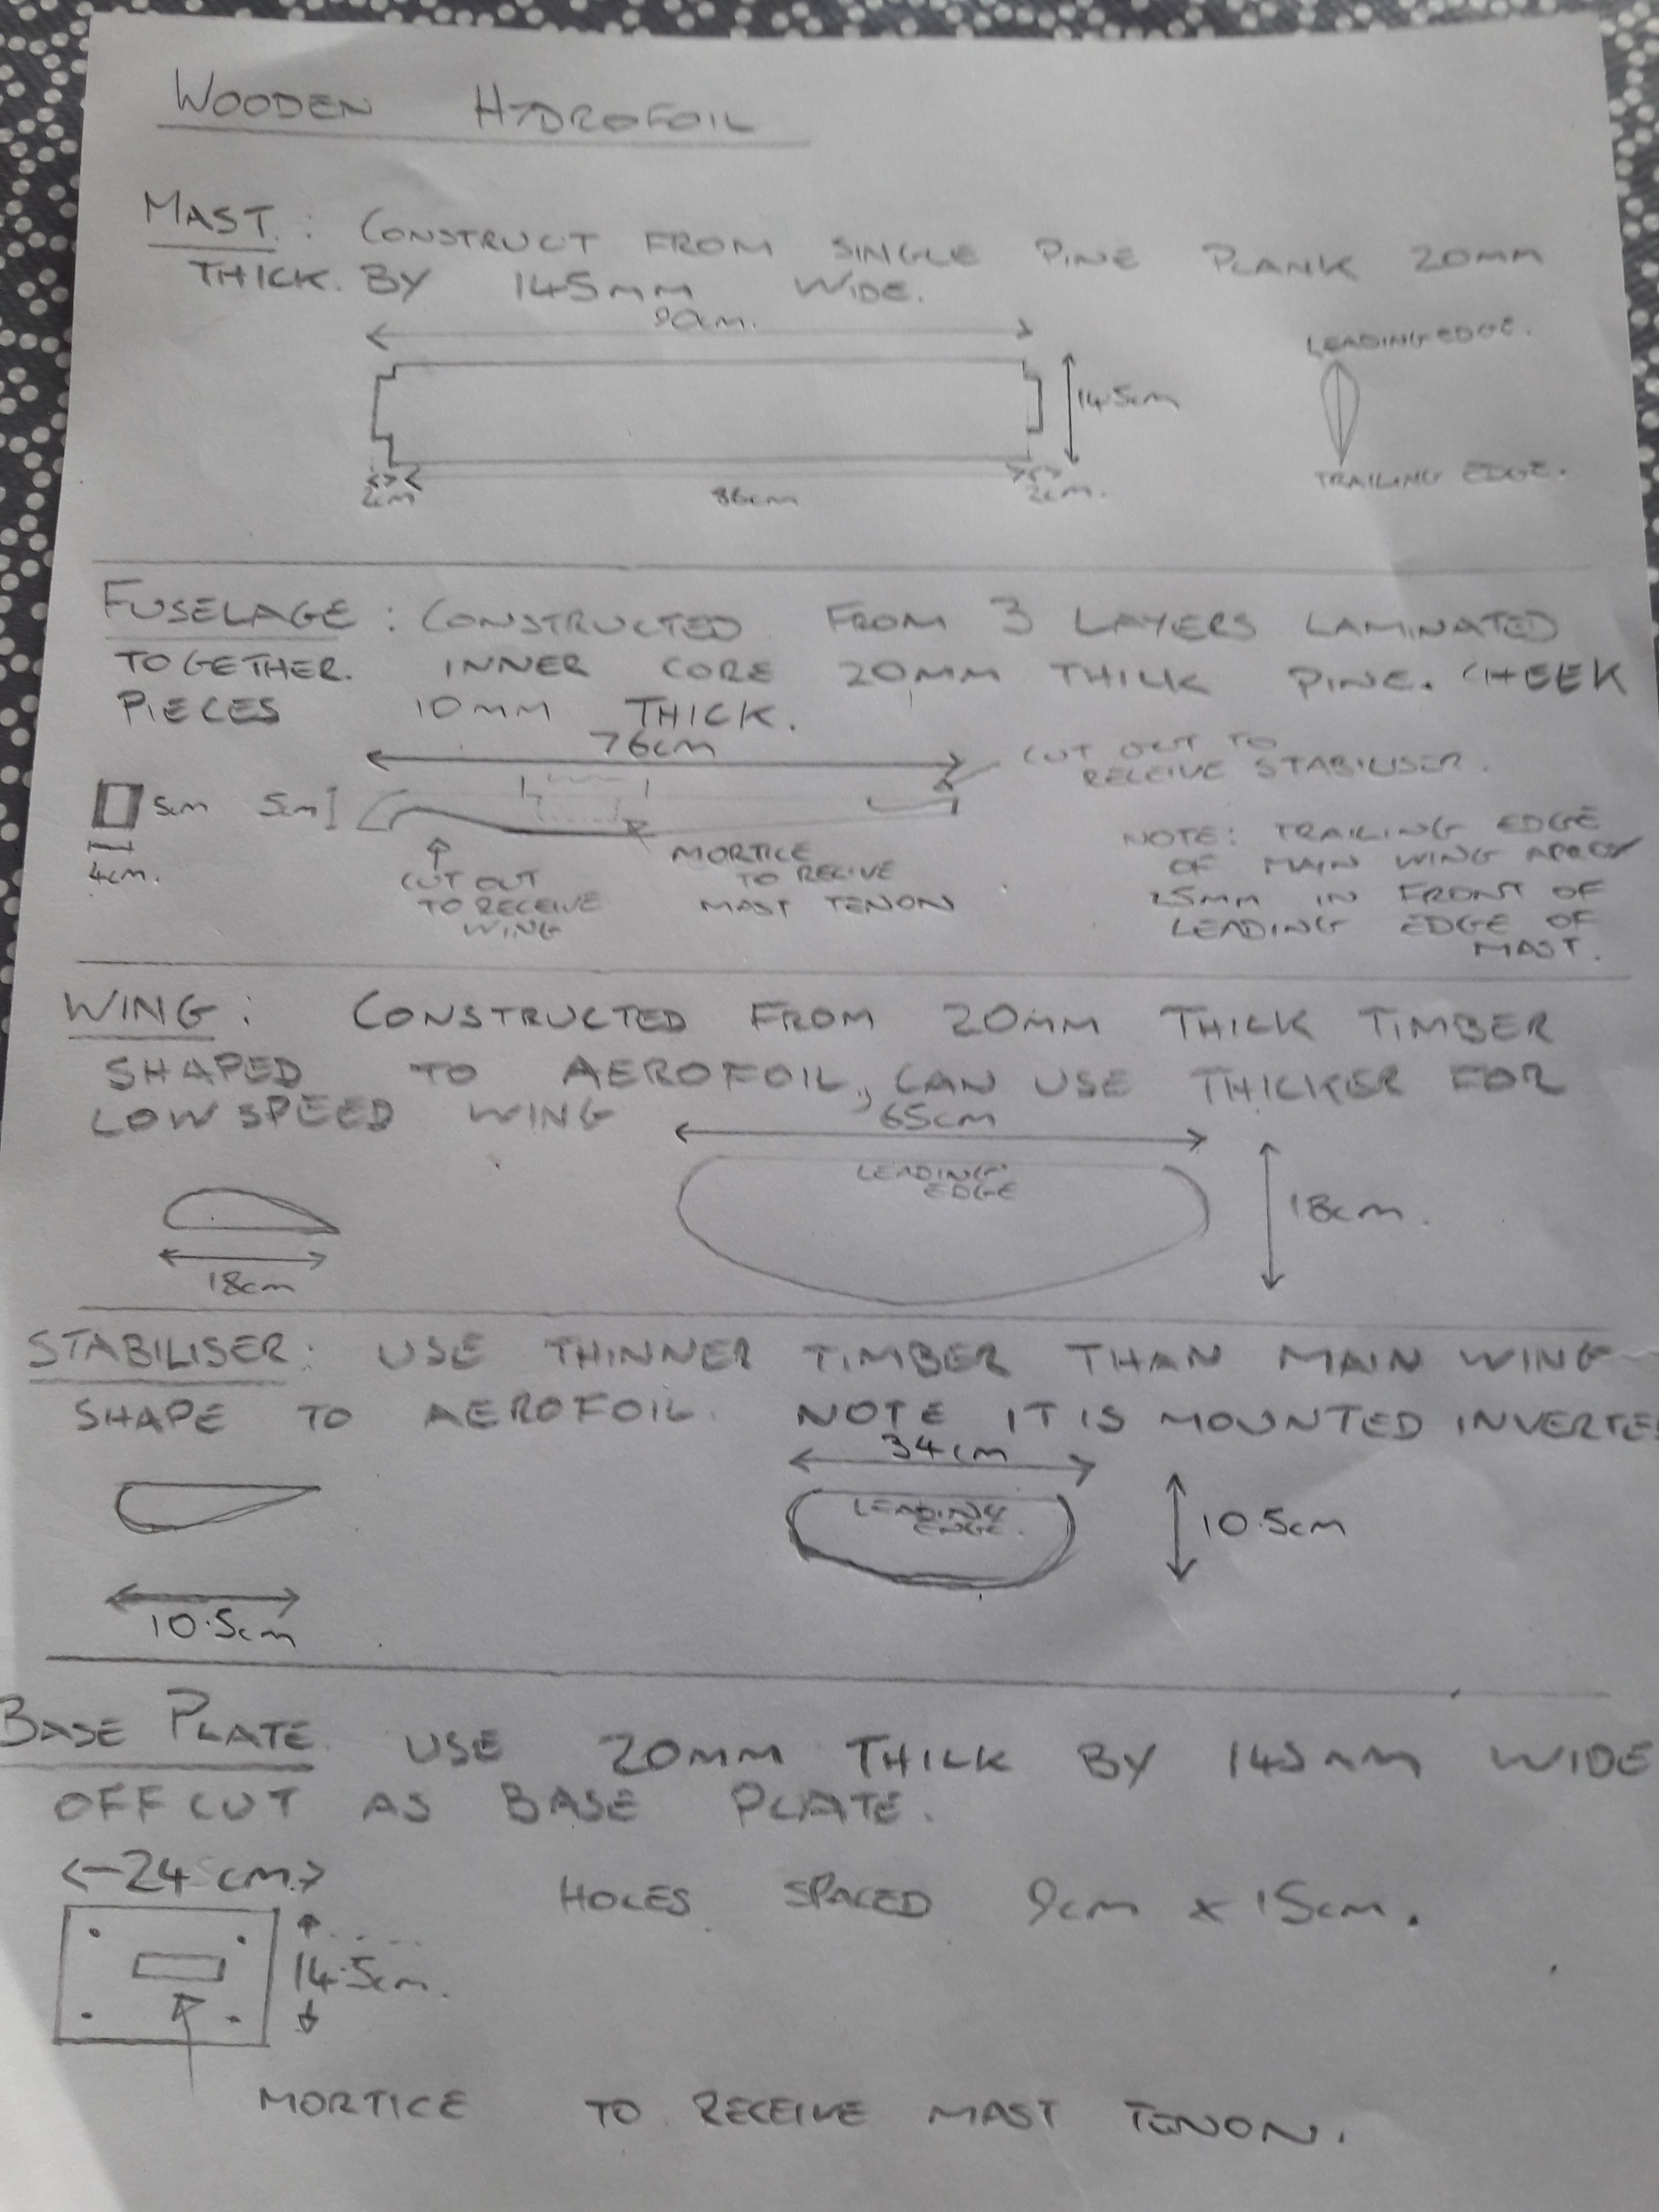 WOODEN HYDROFOIL
MAST: CONSTRUCT FROM SINGLE PINE PLANK 20MM
THICK. BY 145MM WIDE.
90cm.
LEADING EDGE.
14.5cm
TRAILING EDGE.
2cm
86cm
2cm.
FUSELAGE: CONSTRUCTED FROM 3 LAYERS LAMINATED
TOGETHER. INNER CORE 20MM THICK PINE. CHEEK
PIECES 10MM THICK.
76cm
CUT OUT TO
RECEIVE STABILISER.
5cm
5cm
4cm.
CUT OUT
TO RECEIVE
WING
MORTICE
TO RECIVE
MAST TENON
NOTE: TRAILING EDGE
OF MAIN WING APROX
25MM IN FRONT OF
LEADING EDGE OF
MAST.
WING: CONSTRUCTED FROM 20MM THICK TIMBER
SHAPED TO AEROFOIL, CAN USE THICKER FOR
LOW SPEED WING
65cm
LEADING
EDGE
18cm.
18cm
STABILISER: USE THINNER TIMBER THAN MAIN WING
SHAPE TO AEROFOIL. NOTE IT IS MOUNTED INVERTE
34cm
LEADING
EDGE.
10.5cm
10.5cm
BASE PLATE. USE 20MM THICK BY 145MM WIDE
OFF CUT AS BASE PLATE.
24cm
HOLES SPACED 9cm x 15cm.
14.5cm.
MORTICE TO RECEIVE MAST TENON.